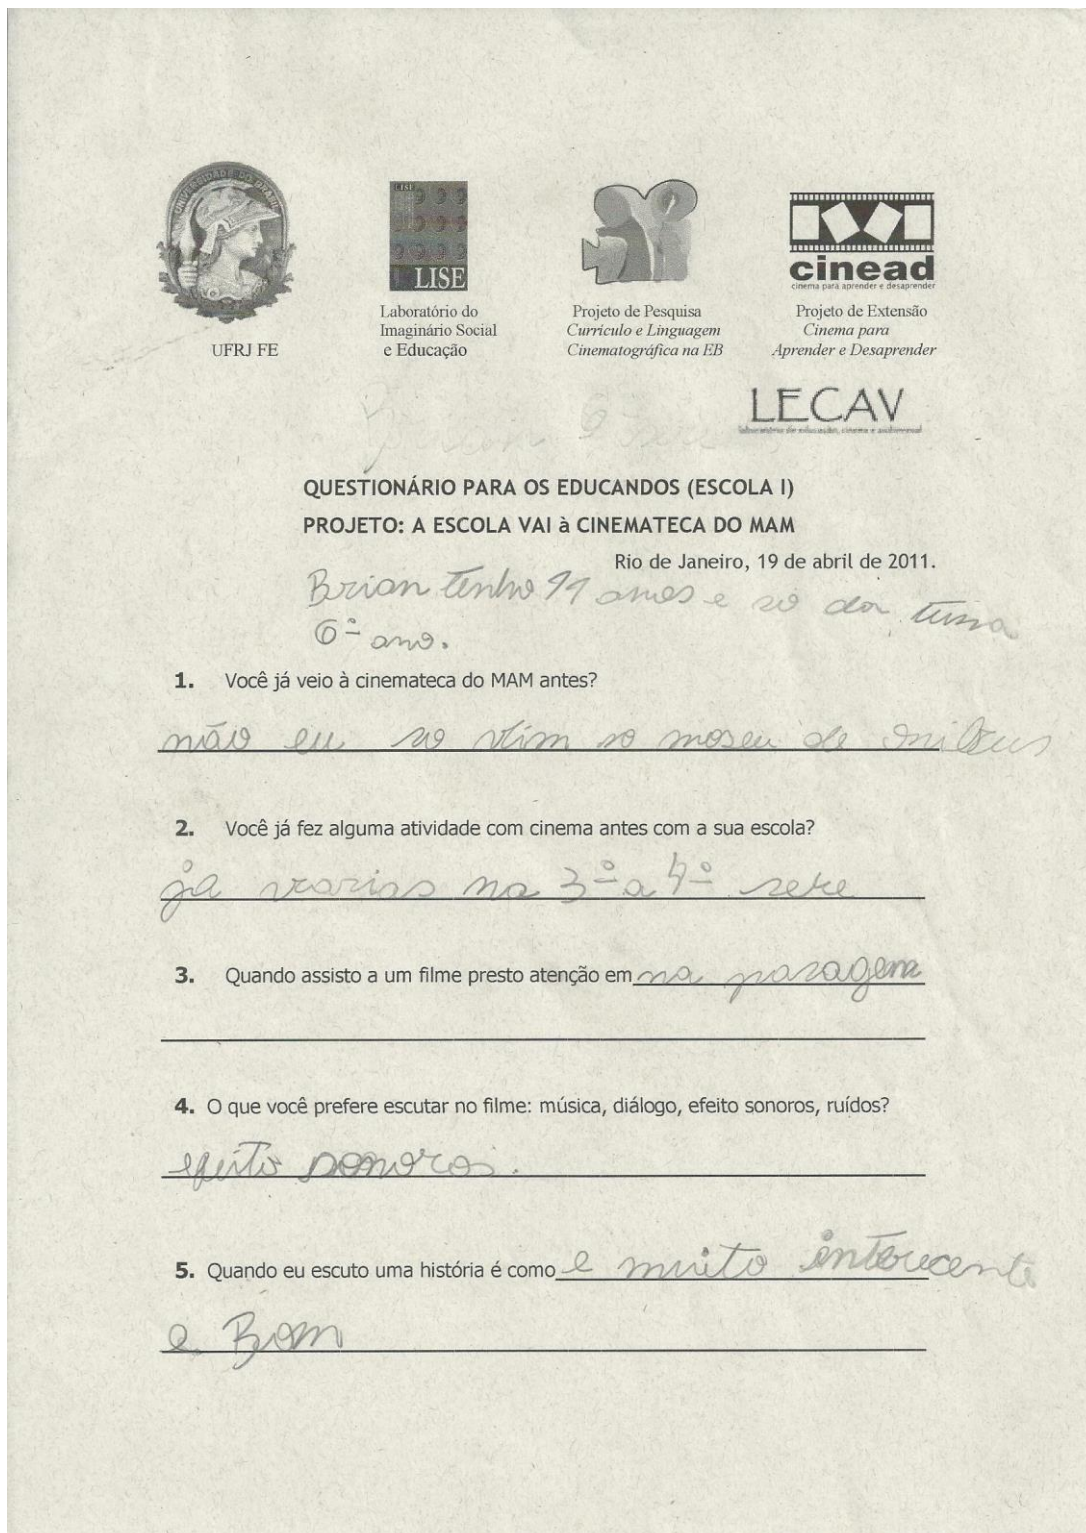 UNIVERSIDADE DO BRASIL
LISE
LISE
cinead
cinema para aprender e desaprender
UFRJ FE
Laboratório do
Imaginário Social
e Educação
Projeto de Pesquisa
Currículo e Linguagem
Cinematográfica na EB
Projeto de Extensão
Cinema para
Aprender e Desaprender
LECAV
laboratório de educação, cinema e audiovisual
QUESTIONÁRIO PARA OS EDUCANDOS (ESCOLA I)
PROJETO: A ESCOLA VAI à CINEMATECA DO MAM
Rio de Janeiro, 19 de abril de 2011.
Brian tenho 11 anos e so da tuma
6º ano.
1. Você já veio à cinemateca do MAM antes?
não eu so vim so moseu de onibus
2. Você já fez alguma atividade com cinema antes com a sua escola?
ja varias na 3º a 4º sere
3. Quando assisto a um filme presto atenção em na pazagem
4. O que você prefere escutar no filme: música, diálogo, efeito sonoros, ruídos?
efeito sonoros.
5. Quando eu escuto uma história é como e muito interecente
e Bom